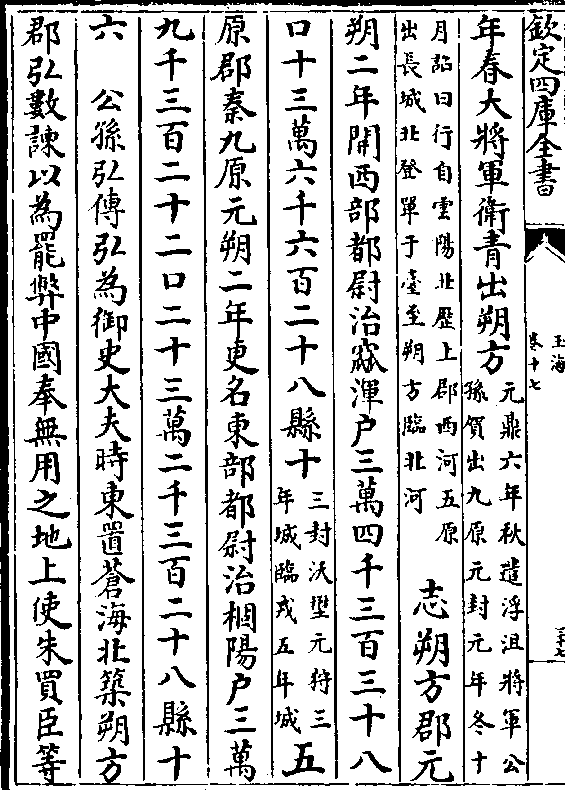 欽定四庫全書
玉海
卷十七
年春大將軍衛青出朔方
元鼎六年秋遣浮沮將軍公
孫賀出九原元封元年冬十
月詔曰行自雲陽北歴上郡西河五原
出長城北登單于臺至朔方臨北河
志朔方郡元
朔二年開西部都尉治窳渾户三萬四千三百三十八
口十三萬六千六百二十八縣十
三封沃壄元狩三
年城臨戎五年城
五
原郡秦九原元朔二年更名東部都尉治稒陽户三萬
九千三百二十二口二十三萬二千三百二十八縣十
六　公孫弘傳弘為御史大夫時東置蒼海北築朔方
郡弘數諫以為罷弊中國奉無用之地上使朱買臣等